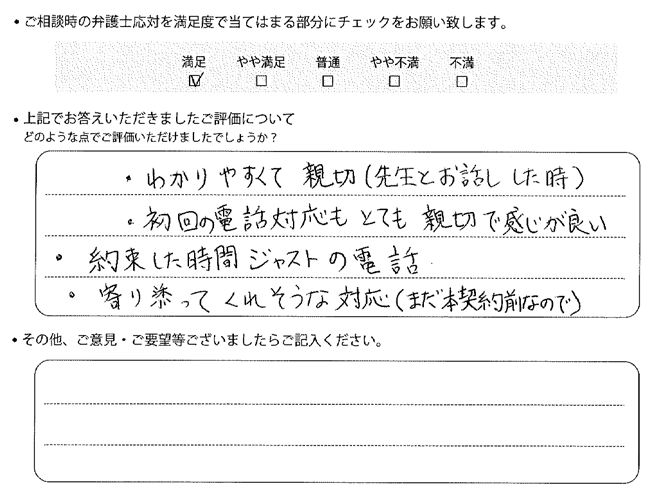 • ご相談時の弁護士応対を満足度で当てはまる部分にチェックをお願い致します。
満足 やや満足 普通 やや不満 不満
☑ □ □ □ □
• 上記でお答えいただきましたご評価について
どのような点でご評価いただけましたでしょうか？
・わかりやすくて 親切(先生とお話しした時)
・初回の電話対応も とても 親切で感じが良い
・約束した時間ジャストの電話
・寄り添ってくれそうな対応(まだ本契約前なので)
• その他、ご意見・ご要望等ございましたらご記入ください。